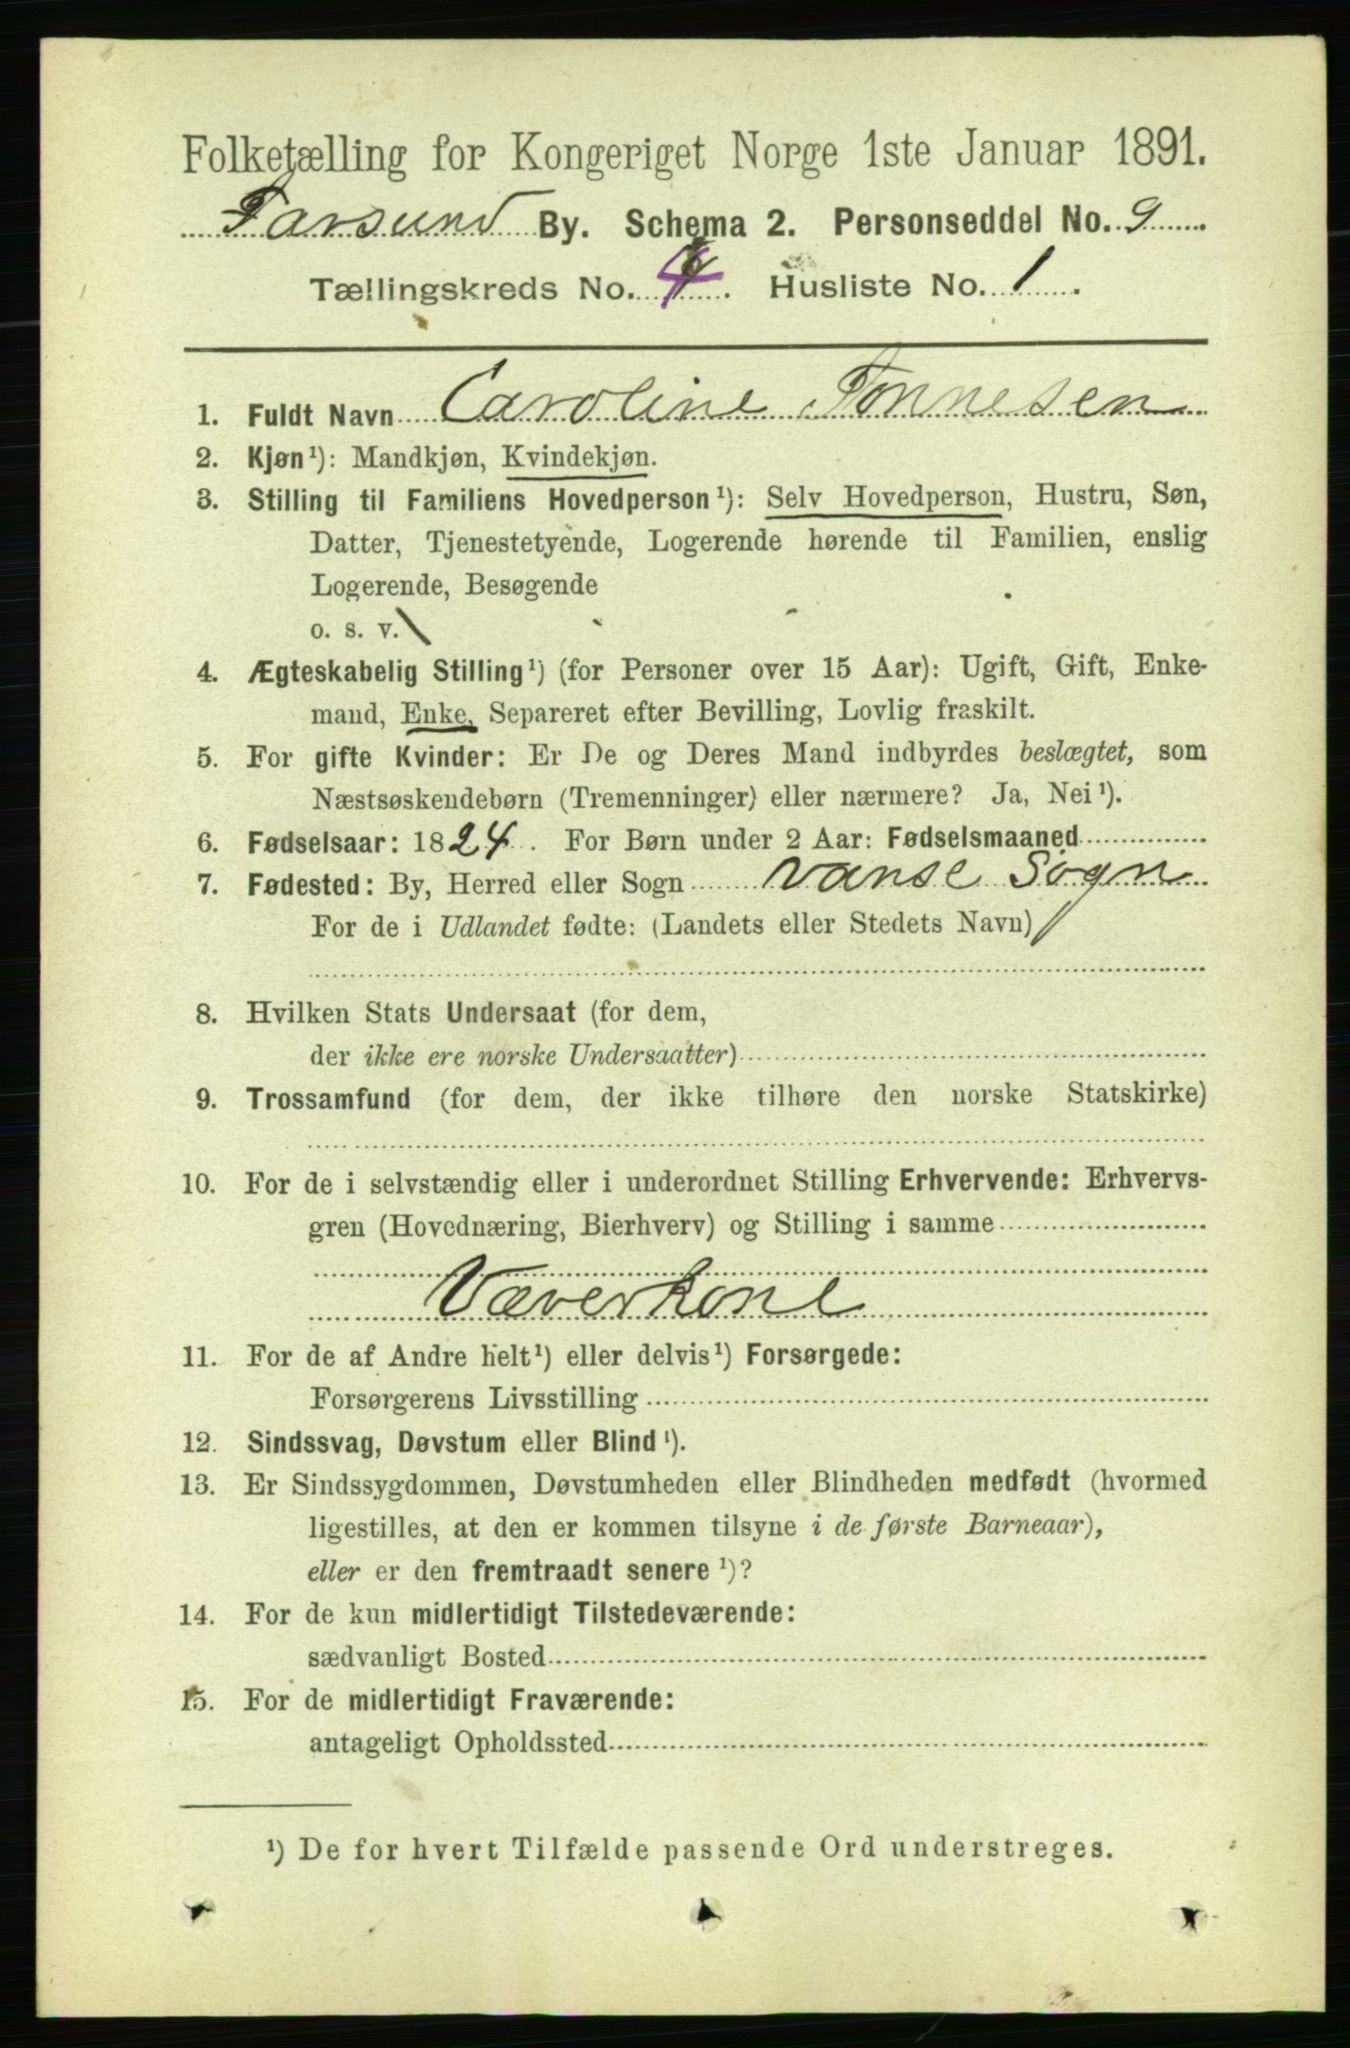 Folketælling for Kongeriget Norge 1ste Januar 1891.
Farsund By. Schema 2. Personseddel No. 9
Tællingskreds No. 4. Husliste No. 1.
1. Fuldt Navn Caroline Tonnesen
2. Kjøn¹): Mandkjøn, Kvindekjøn.
3. Stilling til Familiens Hovedperson¹): Selv Hovedperson, Hustru, Søn,
Datter, Tjenestetyende, Logerende hørende til Familien, enslig
Logerende, Besøgende
o. s. v.
4. Ægteskabelig Stilling¹) (for Personer over 15 Aar): Ugift, Gift, Enke-
mand, Enke, Separeret efter Bevilling, Lovlig fraskilt.
5. For gifte Kvinder: Er De og Deres Mand indbyrdes beslægtet, som
Næstsøskendebørn (Tremenninger) eller nærmere? Ja, Nei¹).
6. Fødselsaar: 1824. For Børn under 2 Aar: Fødselsmaaned
7. Fødested: By, Herred eller Sogn Vanse Sogn
For de i Udlandet fødte: (Landets eller Stedets Navn)
8. Hvilken Stats Undersaat (for dem,
der ikke ere norske Undersaatter)
9. Trossamfund (for dem, der ikke tilhøre den norske Statskirke)
10. For de i selvstændig eller i underordnet Stilling Erhvervende: Erhvervs-
gren (Hovednæring, Bierhverv) og Stilling i samme
Væverkone
11. For de af Andre helt¹) eller delvis¹) Forsørgede:
Forsørgerens Livsstilling
12. Sindssvag, Døvstum eller Blind¹).
13. Er Sindssygdommen, Døvstumheden eller Blindheden medfødt (hvormed
ligestilles, at den er kommen tilsyne i de første Barneaar),
eller er den fremtraadt senere¹)?
14. For de kun midlertidigt Tilstedeværende:
sædvanligt Bosted
15. For de midlertidigt Fraværende:
antageligt Opholdssted
¹) De for hvert Tilfælde passende Ord understreges.